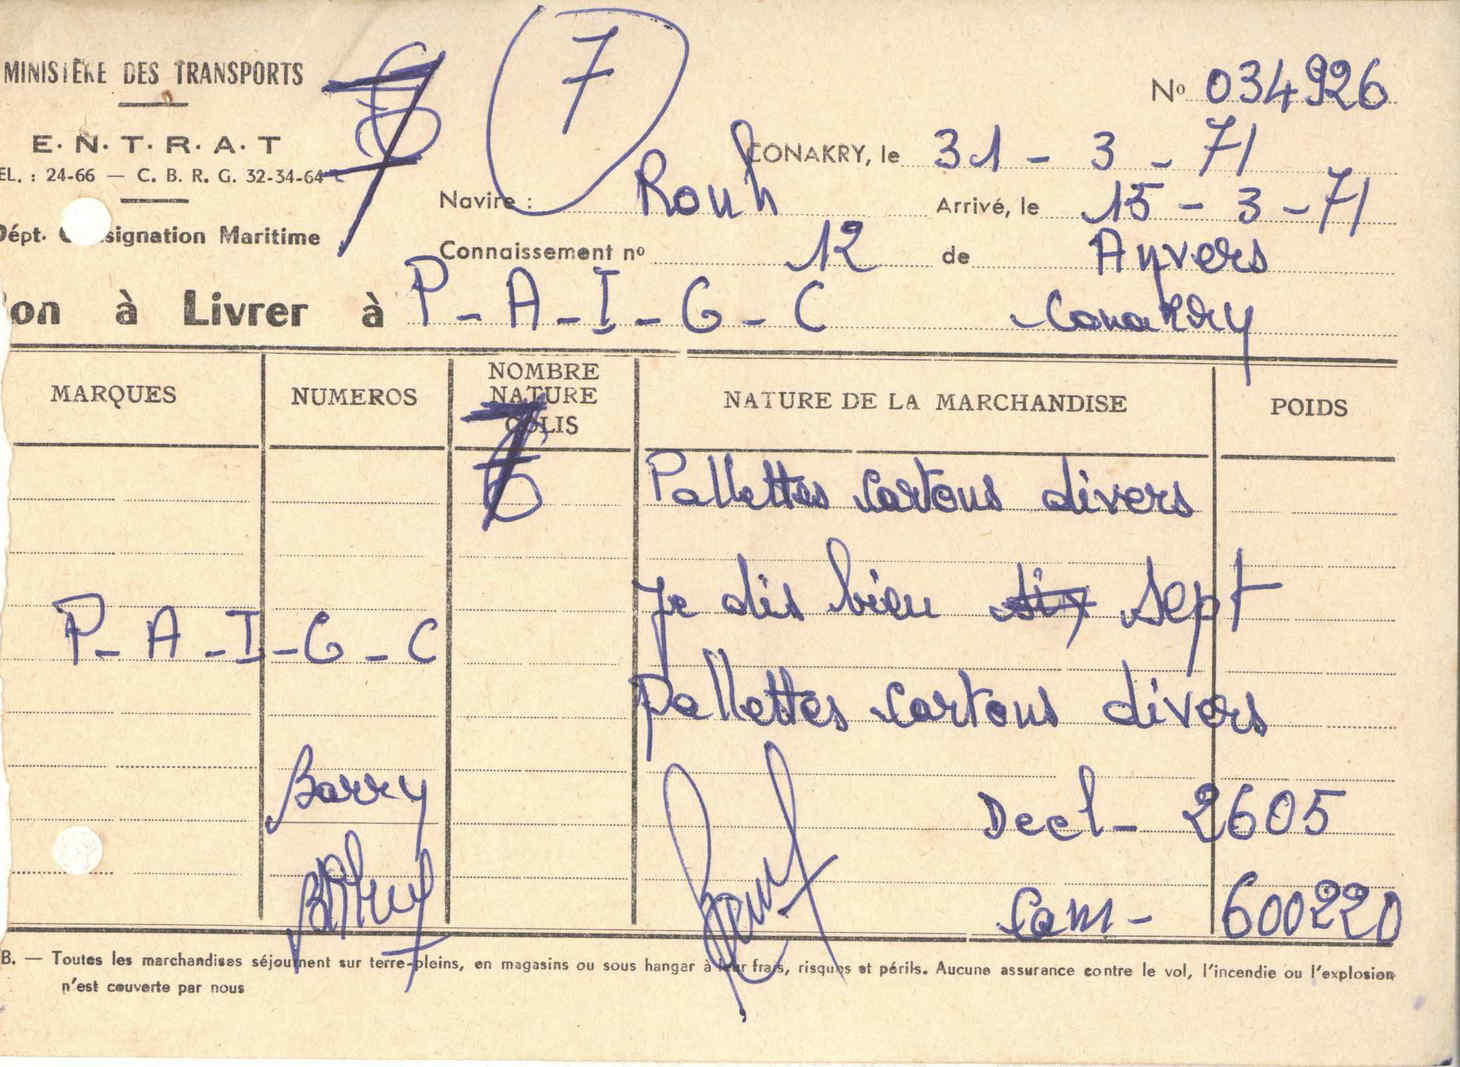 MINISTÈRE DES TRANSPORTS
E·N·T·R·A·T
EL. : 24-66 — C. B. R. G. 32-34-64
Dépt. signation Maritime
7
7
No 034926
CONAKRY, le 31 - 3 - 71
Navire : Rouh Arrivé, le 15 - 3 - 71
Connaissement no 12 de Anvers
on à Livrer à P-A-I-G-C Conakry
MARQUES NUMEROS NOMBRE NATURE COLIS NATURE DE LA MARCHANDISE POIDS
7 Pallettes cartons divers
Je dis bien six sept
P-A-I-G-C
pallettes cartons divers
Barry
Decl- 2605
Cam- 600220
B. — Toutes les marchandises séjournent sur terre-pleins, en magasins ou sous hangar à leur frais, risques et périls. Aucune assurance contre le vol, l'incendie ou l'explosion
n'est couverte par nous